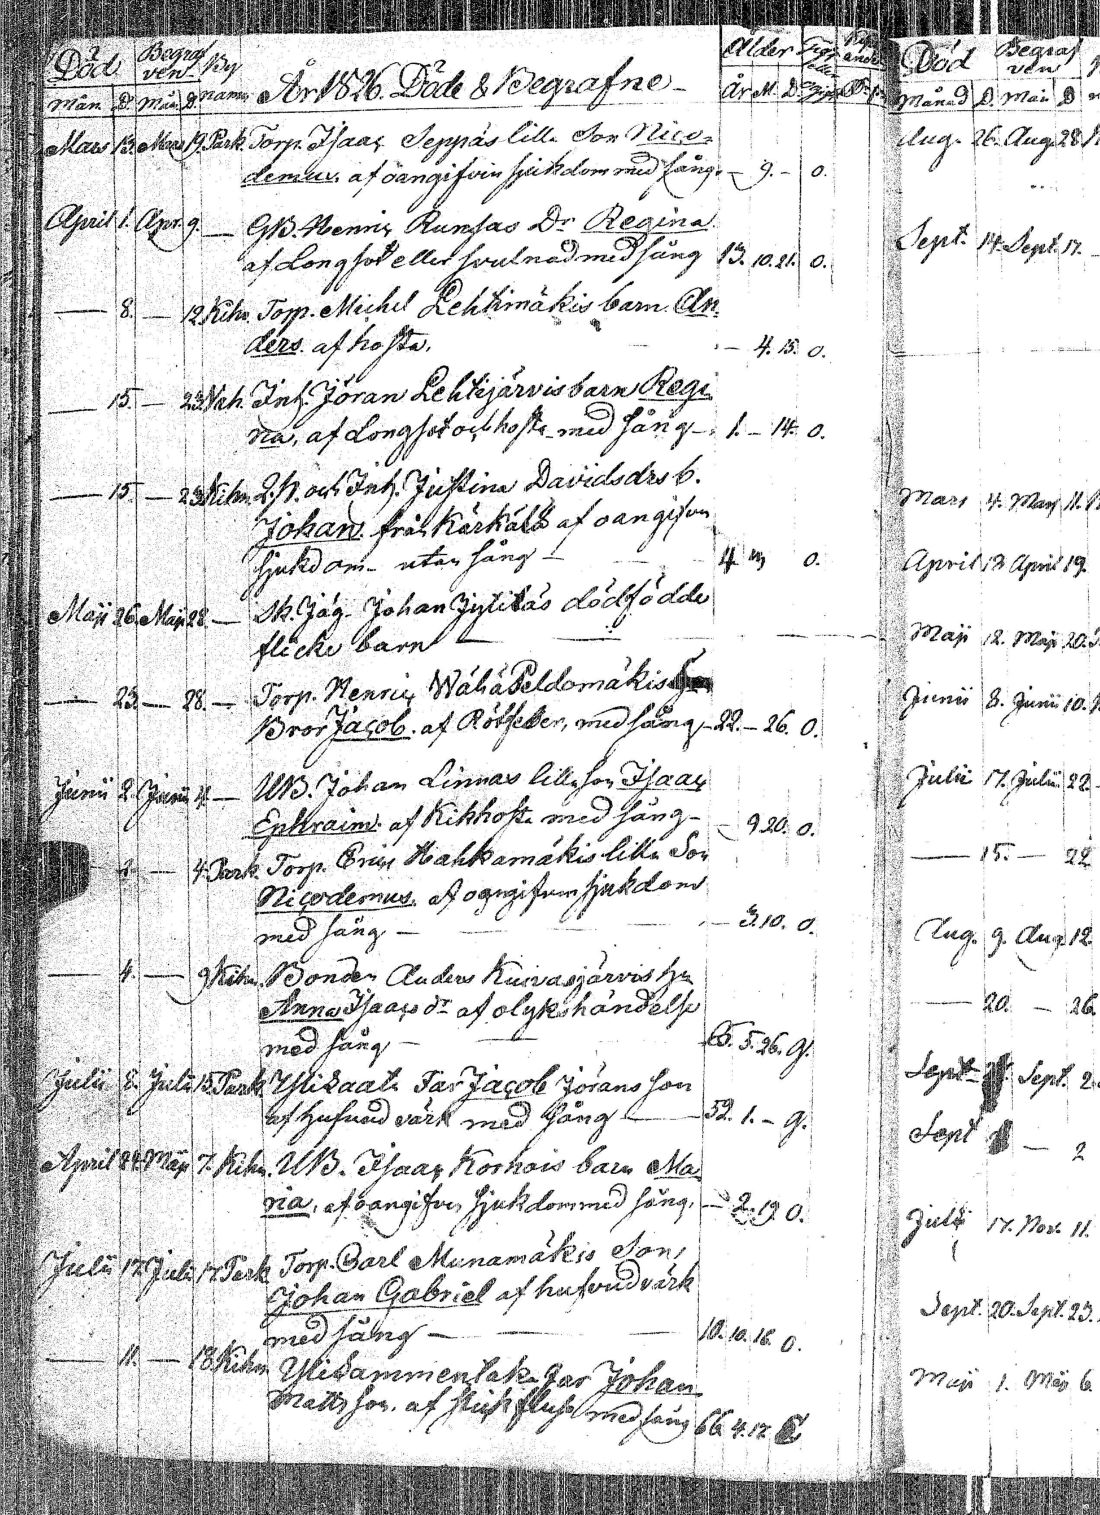 Död Begrafven By År 1826. Döde & Begrafne Ålder
Mån D. Mån D. namn År M. D.
Mars 13. Mars 19. Park. Torp. Isaac Seppäs lilla Son Nico-
demus. af oangifven sjukdom med sång. — 9. — o.
April 1. Apr. 9. — GB. Henric Runsas Dr Regina
af Longsot eller svulnad med sång 13. 10. 21. o.
— 8. — 12. Kihn. Torp. Michel Lehtimäkis barn An-
ders. af hosta. — 4. 15. o.
— 15. — 23. Nah. Inh. Jöran Lehtijärvis barn Regi
na, af Longsot och hosta med sång — 1. — 14. o.
— 15. — 23. Kihn. Q.P. och Inh. Justina Davidsdrs b.
Johan. från Kärkälä af oangifven
sjukdom utan sång — 4 o.
Maji 26. Maji 28. — Sk. Jäg. Johan Jylitäs dödfödde
flicke barn —
— 23. — 28. — Torp. Henric Wähä Peldomäkis
Bror Jacob. af Rötfeber, med sång — 22. — 26. o.
Junii 2. Junii 4. — UB. Johan Linnas lilla son Isaac
Ephraim. af Kikhosta med sång — — 9. 20. o.
4. Park. Torp. Eric Hahkamäkis lilla Son
Nicodemus. af oangifven sjukdom
med sång — — 3. 10. o.
— 4. — 9. Kihn. Bonden Anders Kuivasjärvis hu
Anna Isaacs dr af olykshändelse
med sång — 5. 26. g.
Julii 8. Julii 15. Park Ylikaata Far Jacob Jörans son
af hufvud värk med sång — 52. 1. — g.
April 24. Maji 7. Kihn. UB. Isaac Korhois barn Ma
ria, af oangifven sjukdom med sång. — 2. 19. o.
Julii 12. Julii 17. Park Torp. Carl Munamäkis Son,
Johan Gabriel af hufvudvärk
med sång — 10. 10. 16. o.
— 11. — 18. Kihn Ylisammentaka Far Johan
Matts son. af stickfluss med sång 66. 4. 12
Död Begrafven
Månad D. Mån D
Aug. 26. Aug. 28
Sept. 14. Sept. 17.
Mars 4. Mars 11.
April 13. April 19.
Maji 12. Maji 20.
Junii 8. Junii 10.
Julii 17. Julii 22.
— 15. — 22
Aug. 9. Aug. 12.
— 20. — 26.
Sept. Sept. 2
Sept — 2
Julii 17. Nov. 11.
Sept. 20. Sept. 23.
Maji 1. Maji 6